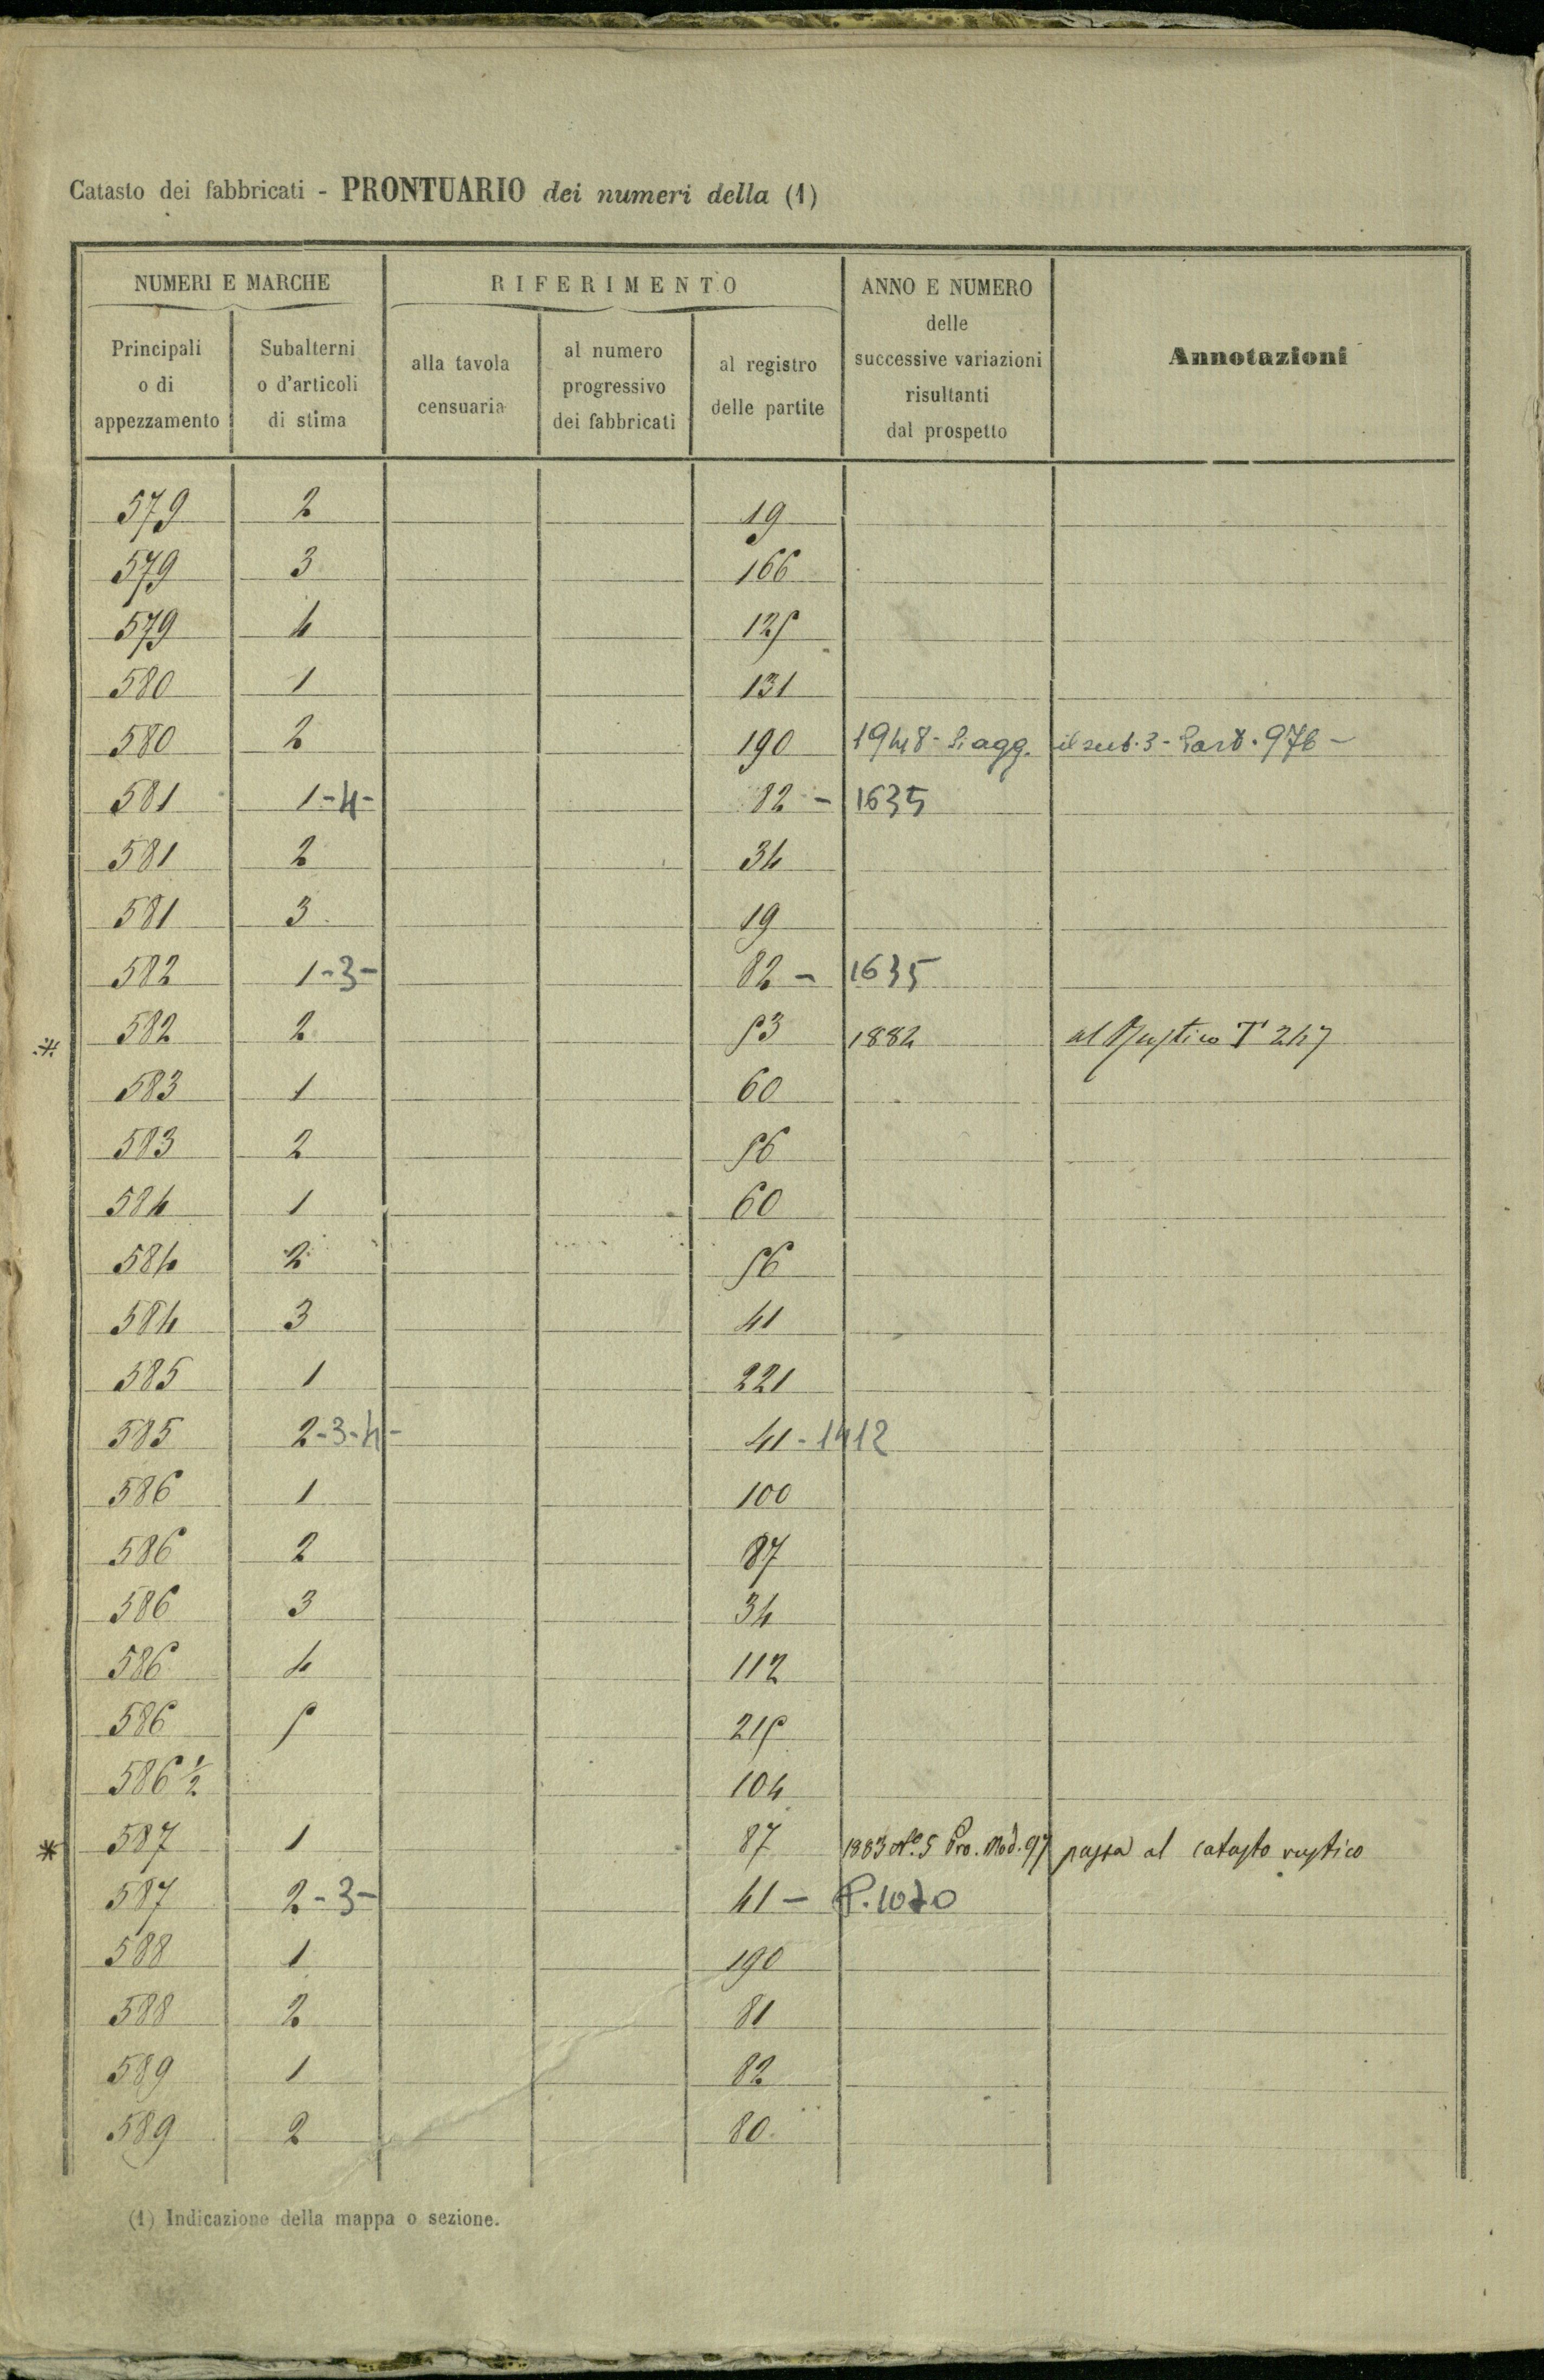 Catasto dei fabbricati - PRONTUARIO dei numeri della (1)
NUMERI E MARCHE
RIFERIMENTO
ANNO E NUMERO
delle
successive variazioni
risultanti
dal prospetto
Annotazioni
Principali
o di
appezzamento
Subalterni
o d'articoli
di stima
alla tavola
censuaria
al numero
progressivo
dei fabbricati
al registro
delle partite
579 2 19
579 3 166
579 4 125
580 1 131
580 2 190 1948 - Si agg. il sub. 3 - Part. 976 -
581 1-4- 82 - 1635
581 2 34
581 3 19
582 1-3- 82 - 1635
* 582 2 53 1882 al Rustico T 247
583 1 60
583 2 56
584 1 60
584 2 56
584 3 41
585 1 221
585 2-3-4- 41 - 1412
586 1 100
586 2 87
586 3 34
586 4 112
586 5 215
586 1/2 104
* 587 1 87 1883 No. 5 Pro. Mod. 97 passa al catasto rustico
587 2-3- 41 - P.
588 1 190
588 2 81
589 1 82
589 2 80
(1) Indicazione della mappa o sezione.